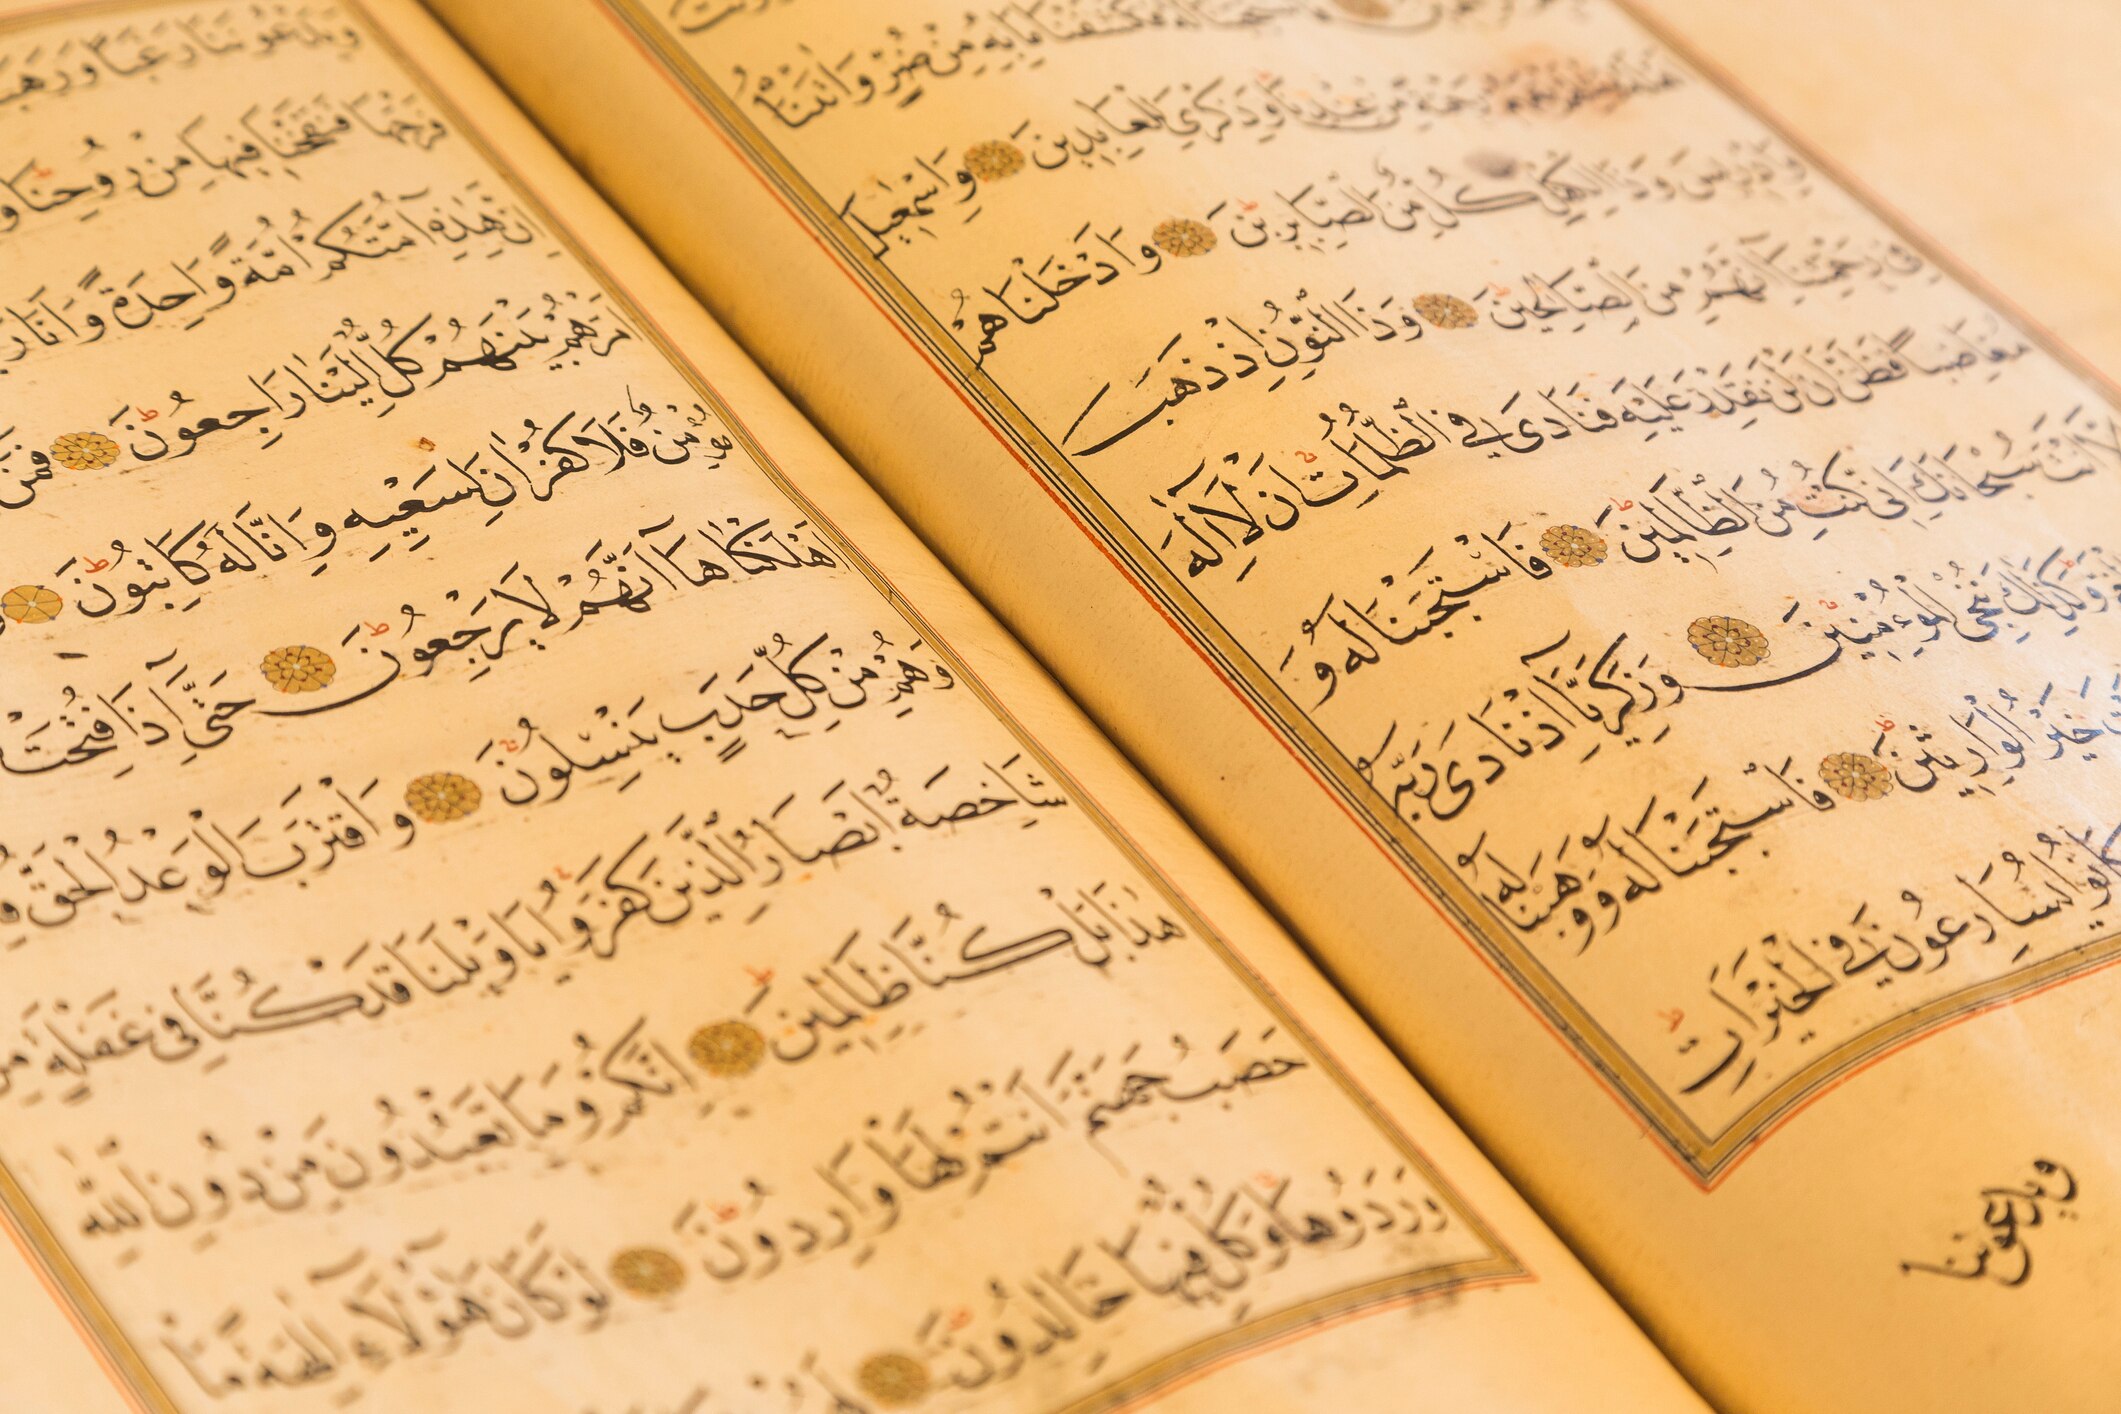 فَكَشَفْنَا مَا بِهِ مِنْ ضُرٍّ وَاٰتَيْنَاهُ
رَحْمَةً مِنْ عِنْدِنَا وَذِكْرٰى لِلْعَابِدِينَ وَاِسْمٰعِيلَ
وَاِدْرِيسَ وَذَا الْكِفْلِ كُلٌّ مِنَ الصَّابِرِينَ وَاَدْخَلْنَاهُمْ
فِي رَحْمَتِنَا اِنَّهُمْ مِنَ الصَّالِحِينَ وَذَا النُّونِ اِذْ ذَهَبَ
مُغَاضِبًا فَظَنَّ اَنْ لَنْ نَقْدِرَ عَلَيْهِ فَنَادَى فِي الظُّلُمَاتِ اَنْ لَا اِلٰهَ
اِلَّا اَنْتَ سُبْحَانَكَ اِنِّي كُنْتُ مِنَ الظَّالِمِينَ فَاسْتَجَبْنَا لَهُ وَ
وَكَذٰلِكَ نُنْجِي الْمُؤْمِنِينَ وَزَكَرِيَّا اِذْ نَادَى رَبَّهُ
خَيْرُ الْوَارِثِينَ فَاسْتَجَبْنَا لَهُ وَوَهَبْنَا لَهُ
كَانُوا يُسَارِعُونَ فِي الْخَيْرَاتِ
ويدعوننا
وَيَدْعُونَنَا رَغَبًا وَرَهَبًا
فَرْجَهَا فَنَفَخْنَا فِيهَا مِنْ رُوحِنَا
اِنَّ هٰذِهِ اُمَّتُكُمْ اُمَّةً وَاحِدَةً وَاَنَا
اَمْرَهُمْ بَيْنَهُمْ كُلٌّ اِلَيْنَا رَاجِعُونَ فَمَنْ
مُؤْمِنٌ فَلَا كُفْرَانَ لِسَعْيِهِ وَاِنَّا لَهُ كَاتِبُونَ
اَهْلَكْنَاهَا اَنَّهُمْ لَا يَرْجِعُونَ حَتّٰى اِذَا فُتِحَتْ
وَهُمْ مِنْ كُلِّ حَدَبٍ يَنْسِلُونَ وَاقْتَرَبَ الْوَعْدُ الْحَقُّ
شَاخِصَةٌ اَبْصَارُ الَّذِينَ كَفَرُوا يَا وَيْلَنَا قَدْ كُنَّا فِي غَفْلَةٍ مِنْ
هٰذَا بَلْ كُنَّا ظَالِمِينَ اِنَّكُمْ وَمَا تَعْبُدُونَ مِنْ دُونِ اللّٰهِ
حَصَبُ جَهَنَّمَ اَنْتُمْ لَهَا وَارِدُونَ لَوْ كَانَ هٰؤُلَاءِ اٰلِهَةً مَا
وَرَدُوهَا وَكُلٌّ فِيهَا خَالِدُونَ لَهُمْ